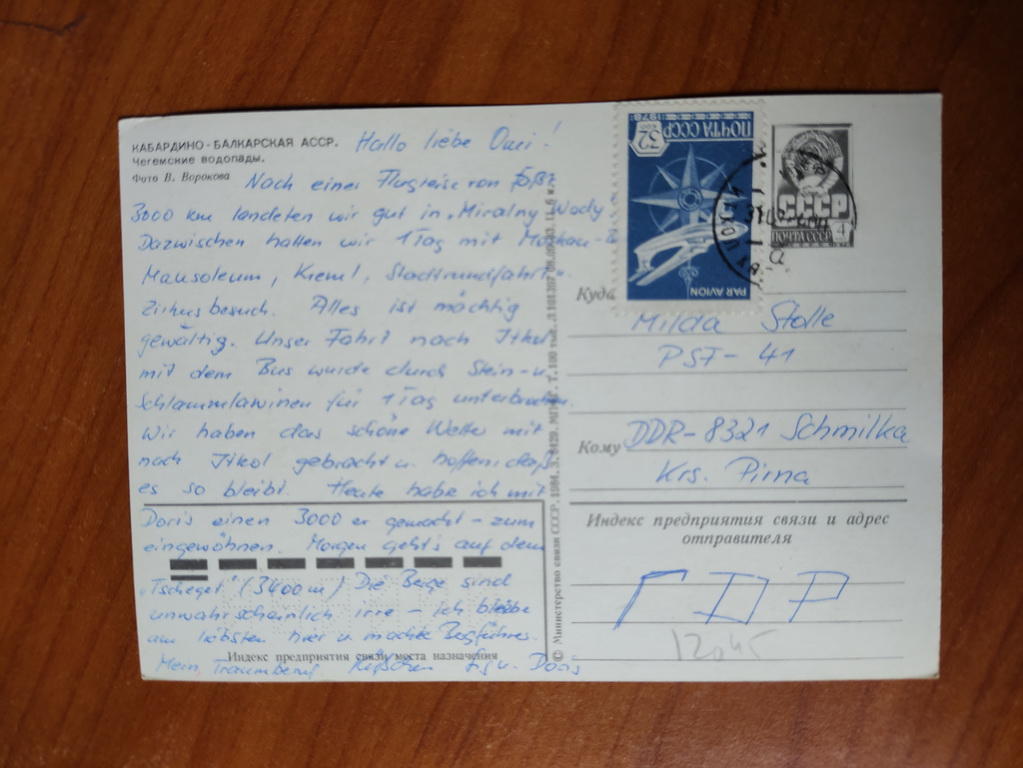 КАБАРДИНО-БАЛКАРСКАЯ АССР.
Чегемские водопады.
Фото В. Ворокова
Hallo liebe Omi!
Nach einer Flugreise von
3000 km landeten wir gut in „Miralny Wody
Dazwischen hatten wir 1 Tag mit Moskau-
Mausoleum, Kreml, Stadtrundfahrt u.
Zirkusbesuch. Alles ist mächtig
gewaltig. Unser Fahrt nach Itkol
mit dem Bus wurde durch Stein- u.
Schlammlawinen für 1 Tag unterbrochen.
Wir haben das schöne Wetter mit
nach Itkol gebracht u. hoffen, daß
es so bleibt. Heute habe ich mit
Doris einen 3000er gemacht - zum
eingewöhnen. Morgen geht's auf dem
„Tscheget" (3400 m) Die Berge sind
unwahrscheinlich irre - ich bleibe
am liebsten hier u. mache Bergführer.
Mein Traumberuf. Küßchen u. Doris
Индекс предприятия связи места назначения
© Министерство связи СССР. 1984.
ПОЧТА СССР
1978
32
PAR AVION
СССР
ПОЧТА СССР
4
Куда
Milda Stolle
PSF - 41
Кому
DDR-8321 Schmilka
Krs. Pirna
Индекс предприятия связи и адрес
отправителя
ГДР